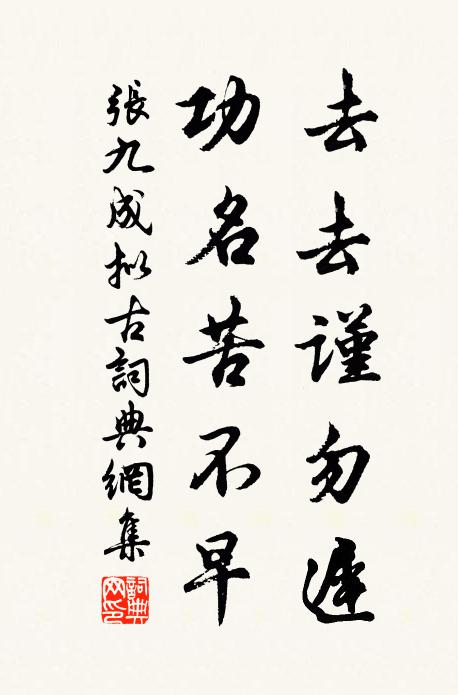 去去謹勿遲
功名苦不早
張九成擬古詞典網集
詞典網印